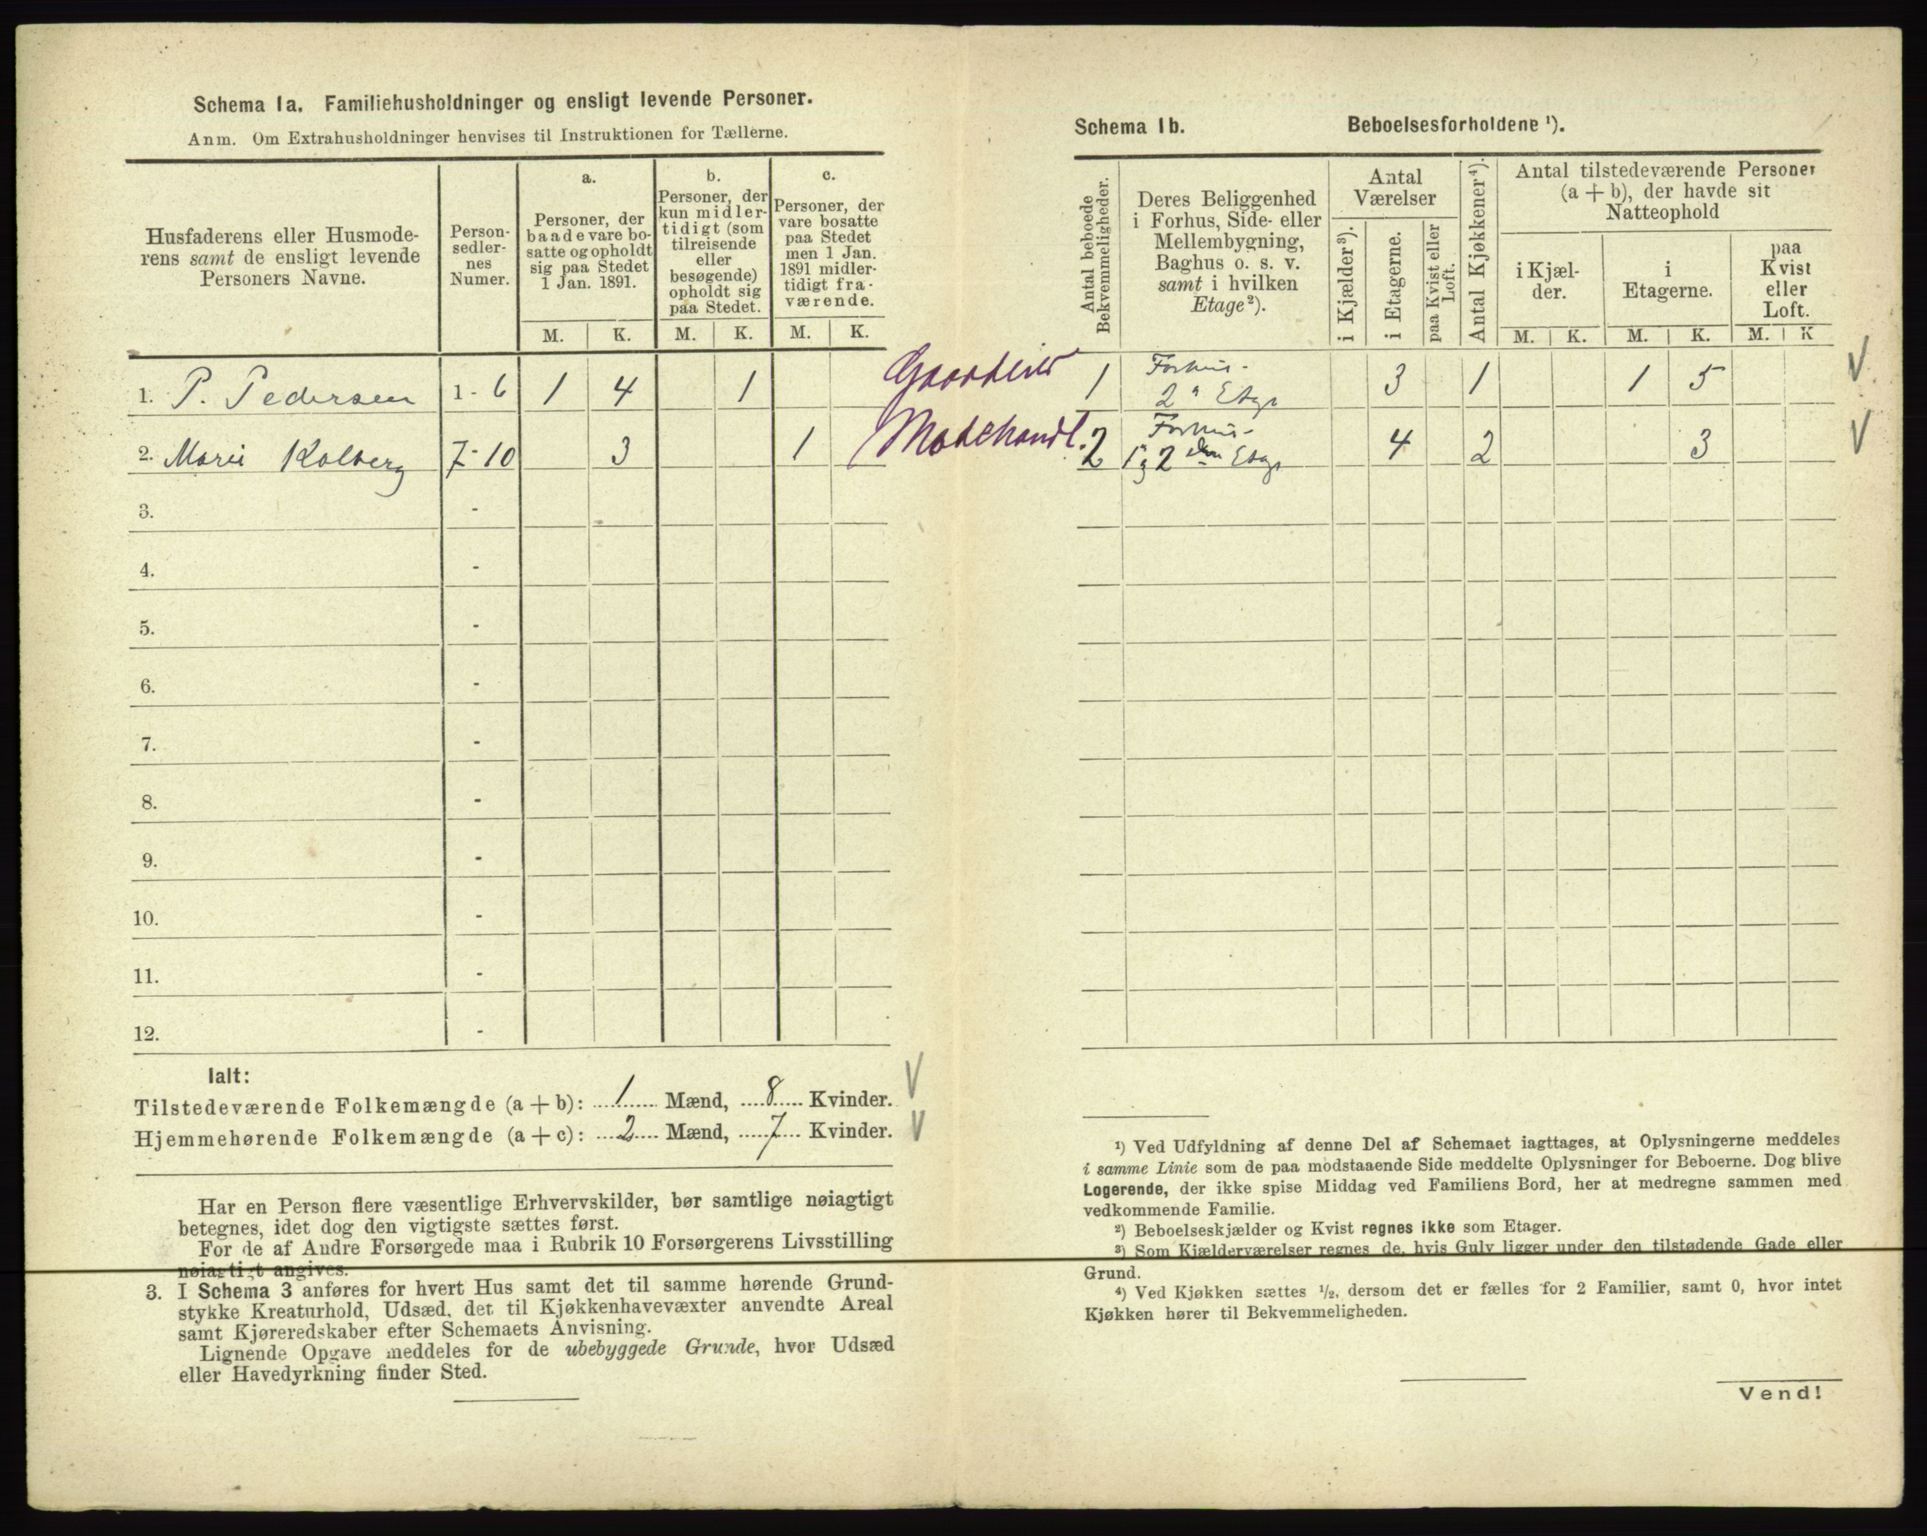 Schema 1a. Familiehusholdninger og ensligt levende Personer.
Anm. Om Extrahusholdninger henvises til Instruktionen for Tællerne.
Husfaderens eller Husmode-
rens samt de ensligt levende
Personers Navne.
Person-
sedler-
nes
Numer.
a.
Personer, der
baade vare bo-
satte og opholdt
sig paa Stedet
1 Jan. 1891.
b.
Personer, der
kun midler-
tidigt (som
tilreisende
eller
besøgende)
opholdt sig
paa Stedet.
c.
Personer, der
vare bosatte
paa Stedet
men 1 Jan.
1891 midler-
tidigt fra-
værende.
M. K. M. K. M. K.
1. P. Pedersen 1 - 6 1 4 1
2. Marie Kolberg 7 - 10 3 1
3. -
4. -
5. -
6. -
7. -
8. -
9. -
10. -
11. -
12. -
Ialt:
Tilstedeværende Folkemængde (a + b): 1 Mænd, 8 Kvinder.
Hjemmehørende Folkemængde (a + c): 2 Mænd, 7 Kvinder.
Har en Person flere væsentlige Erhvervskilder, bør samtlige nøiagtigt
betegnes, idet dog den vigtigste sættes først.
For de af Andre Forsørgede maa i Rubrik 10 Forsørgerens Livsstilling
nøiagtigt angives.
3. I Schema 3 anføres for hvert Hus samt det til samme hørende Grund-
stykke Kreaturhold, Udsæd, det til Kjøkkenhavevæxter anvendte Areal
samt Kjøreredskaber efter Schemaets Anvisning.
Lignende Opgave meddeles for de ubebyggede Grunde, hvor Udsæd
eller Havedyrkning finder Sted.
Schema 1b. Beboelsesforholdene ¹).
Antal beboede
Bekvemmeligheder.
Deres Beliggenhed
i Forhus, Side- eller
Mellembygning,
Baghus o. s. v.
samt i hvilken
Etage²).
Antal
Værelser
i Kjælder³).
i Etagerne.
paa Kvist eller
Loft.
Antal Kjøkkener⁴).
Antal tilstedeværende Personer
(a + b), der havde sit
Natteophold
i Kjæl-
der.
i
Etagerne.
paa
Kvist
eller
Loft.
M. K. M. K. M. K
1 Forhus -
2 " Etage 3 1 1 5
Modehandl. 2 Forhus -
1 og 2 den Etage 4 2 3
¹) Ved Udfyldning af denne Del af Schemaet iagttages, at Oplysningerne meddeles
i samme Linie som de paa modstaaende Side meddelte Oplysninger for Beboerne. Dog blive
Logerende, der ikke spise Middag ved Familiens Bord, her at medregne sammen med
vedkommende Familie.
²) Beboelseskjælder og Kvist regnes ikke som Etager.
³) Som Kjælderværelser regnes de, hvis Gulv ligger under den tilstødende Gade eller
Grund.
⁴) Ved Kjøkken sættes ½, dersom det er fælles for 2 Familier, samt 0, hvor intet
Kjøkken hører til Bekvemmeligheden.
Vend!